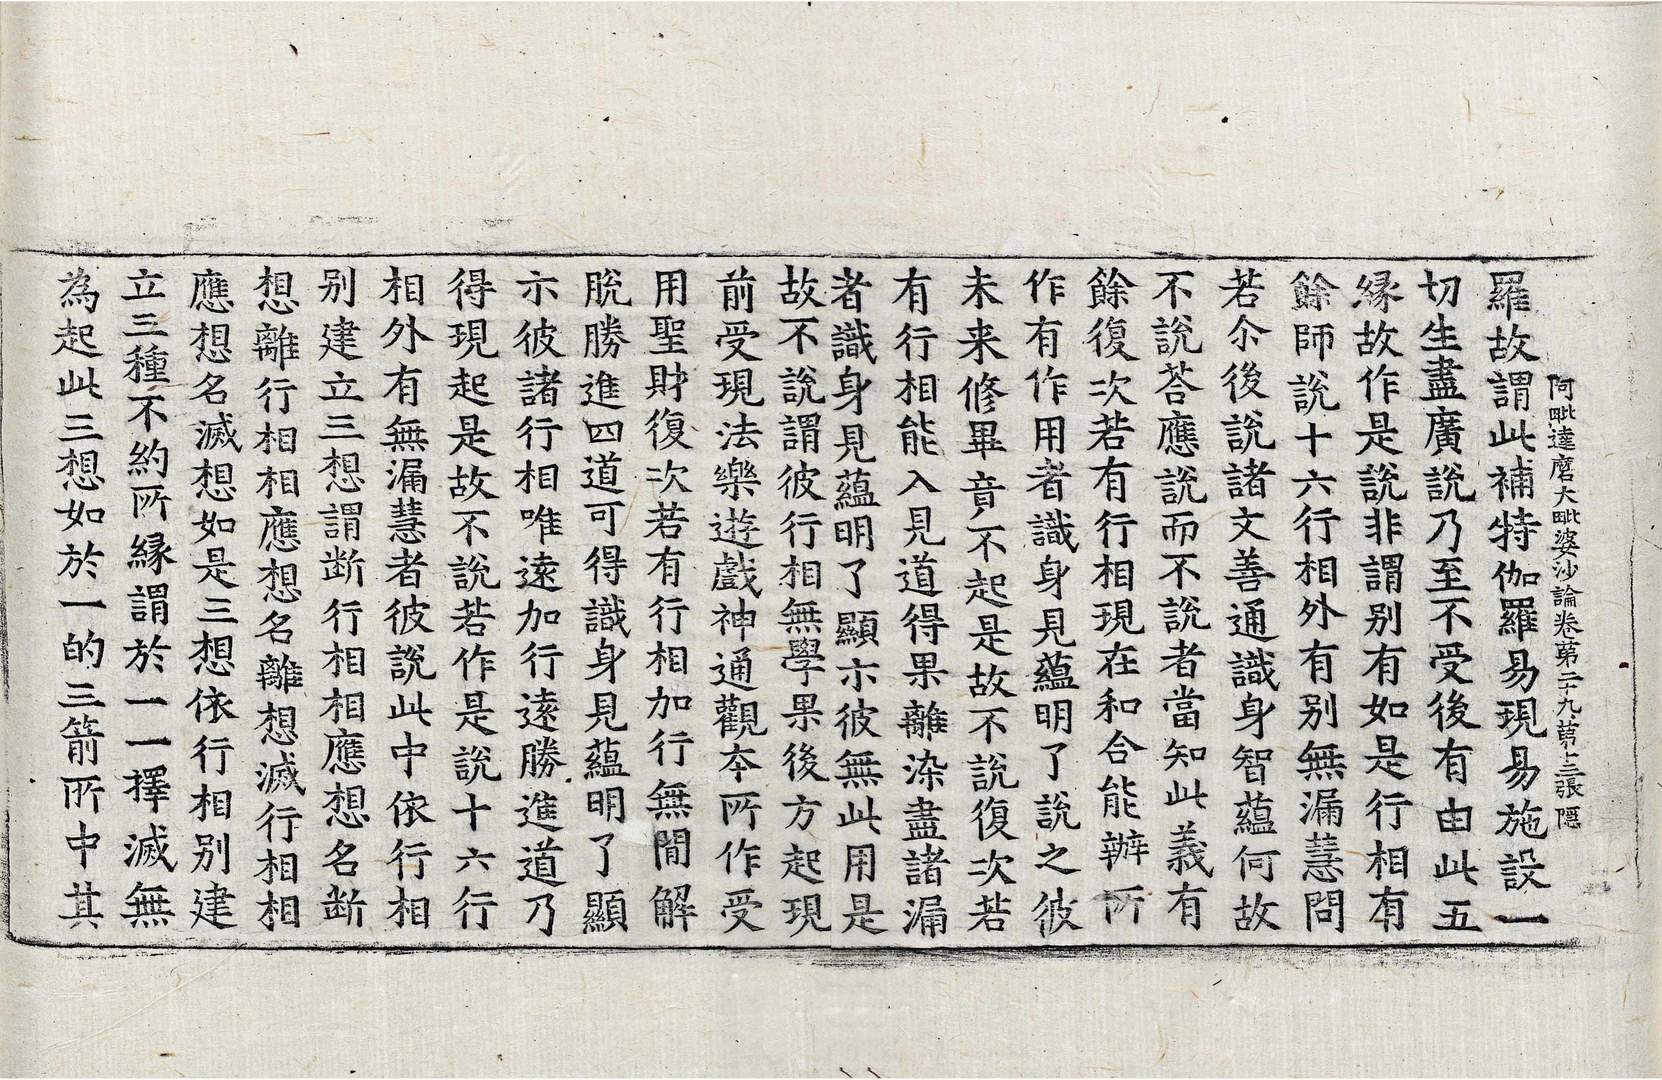 阿毗達磨大毗婆沙論卷第二十九第十三張 隱
羅故謂此補特伽羅易現易施設一
切生盡廣說乃至不受後有由此五
緣故作是說非謂別有如是行相有
餘師說十六行相外有別無漏慧問
若尒後說諸文善通識身智蘊何故
不說荅應說而不說者當知此義有
餘復次若有行相現在和合能辦所
作有作用者識身見蘊明了說之彼
未来修畢竟不起是故不說復次若
有行相能入見道得果離染盡諸漏
者識身見蘊明了顯示彼無此用是
故不說謂彼行相無學果後方起現
前受現法樂遊戲神通觀本所作受
用聖財復次若有行相加行無間解
脫勝進四道可得識身見蘊明了顯
示彼諸行相唯遠加行遠勝進道乃
得現起是故不說若作是說十六行
相外有無漏慧者彼說此中依行相
別建立三想謂斷行相相應想名斷
想離行相相應想名離想滅行相相
應想名滅想如是三想依行相別建
立三種不約所緣謂於一一擇滅無
為起此三想如於一的三箭所中其